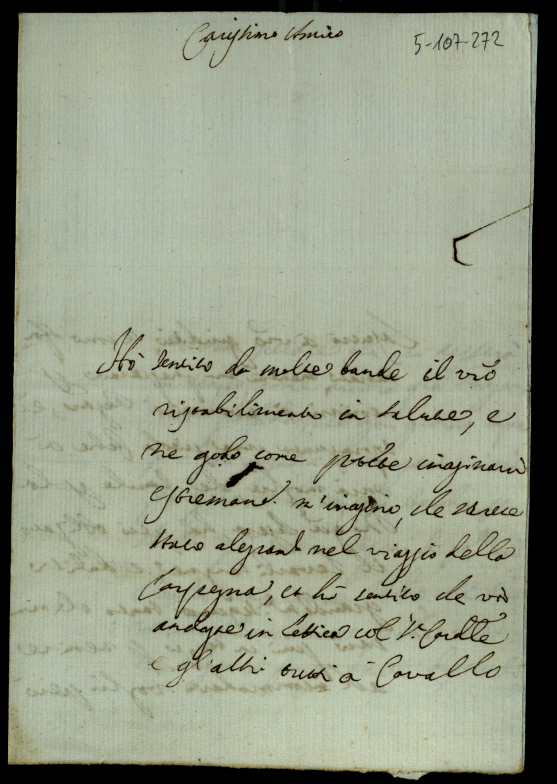 Carissimo Amico
5-107-272
Hò sentito da molte bande il vrõ
ristabilimento in salute, e
ne godo come potete imaginarvi
estremamte m'imagino, che sarete
stato alegramte nel viaggio della
Carpegna, et hò sentito che voi
andaste in lettica col Sr.
e gl'altri tutti à Cavallo